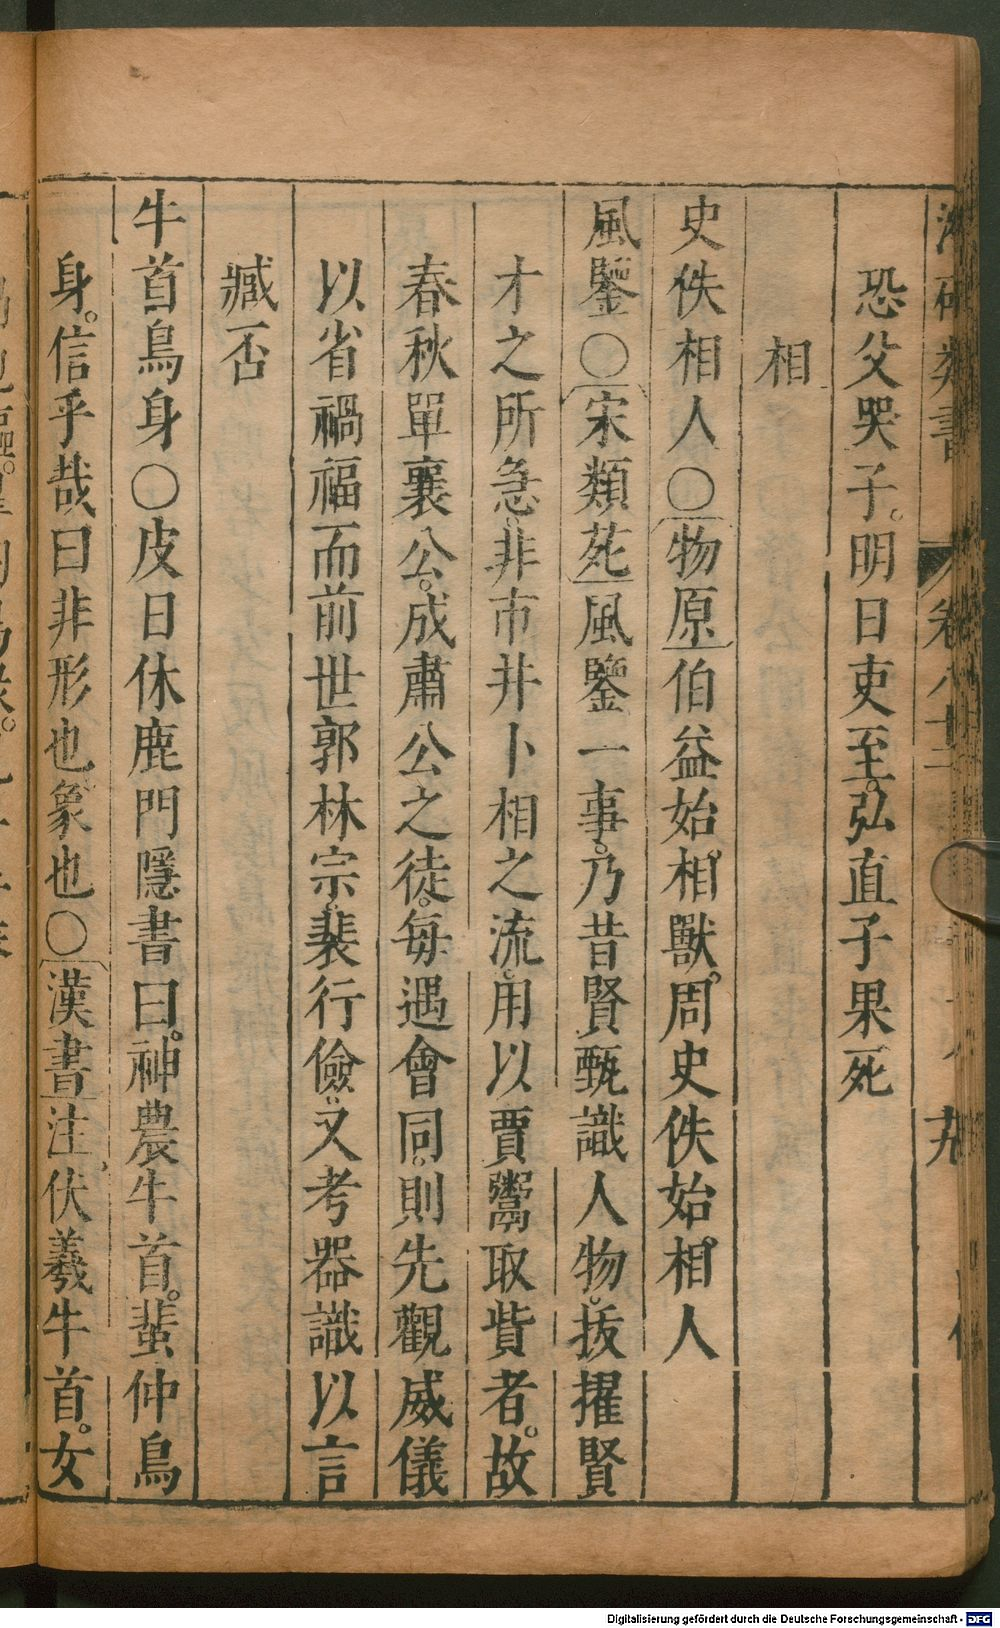 類書
卷八
恐父哭子。明日吏至。弘直子果死
相
史佚相人○物原伯益始相獸。周史佚始相人
風鑒○宋類苑風鑒一事。乃昔賢甄識人物。拔擢賢
才之所急。非市井卜相之流。用以賈鬻取貲者。故
春秋單襄公。成肅公之徒。每遇會同。則先觀威儀
以省禍福而前世郭林宗。裴行儉。又考器識以言
臧否
牛首鳥身○皮日休鹿門隱書曰。神農牛首。蜚仲鳥
身。信乎哉曰非形也。象也○漢書注伏羲牛首。女
Digitalisierung gefördert durch die Deutsche Forschungsgemeinschaft - DFG